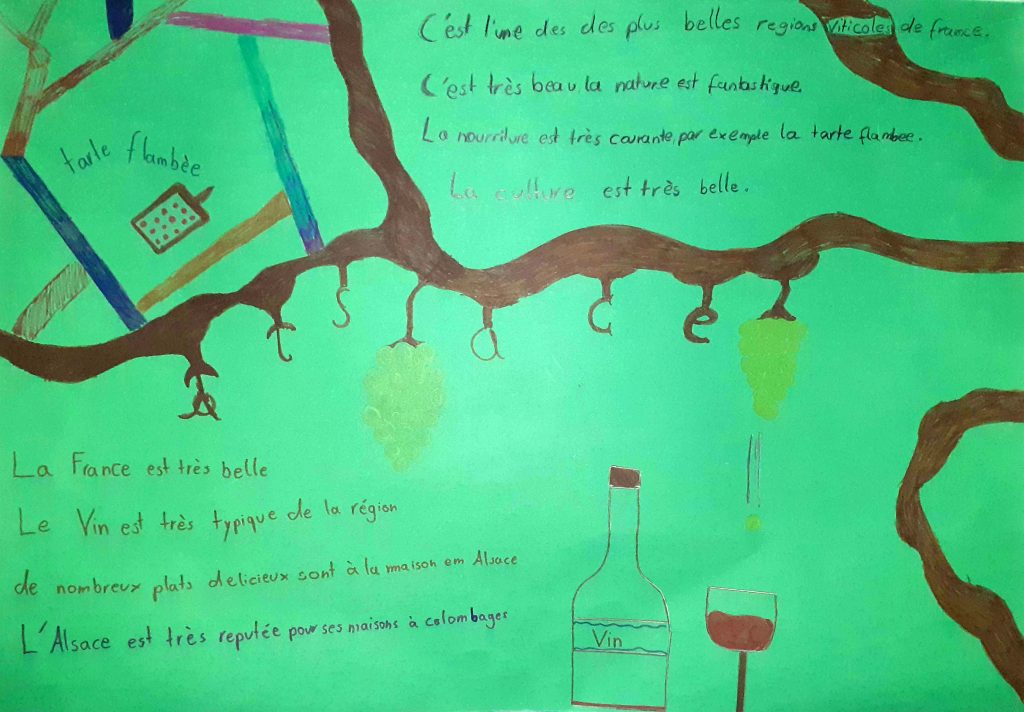 C'est l'une des des plus belles regions viticoles de france.
C'est très beau, la nature est fantastique.
La nourriture est très courante, par exemple la tarte flambee.
La culture est très belle.
tarte flambèe
A l s a c e
La France est très belle
Le Vin est très typique de la région
de nombreux plats delicieux sont à la maison em Alsace
L'Alsace est très reputée pour ses maisons à colombages
Vin